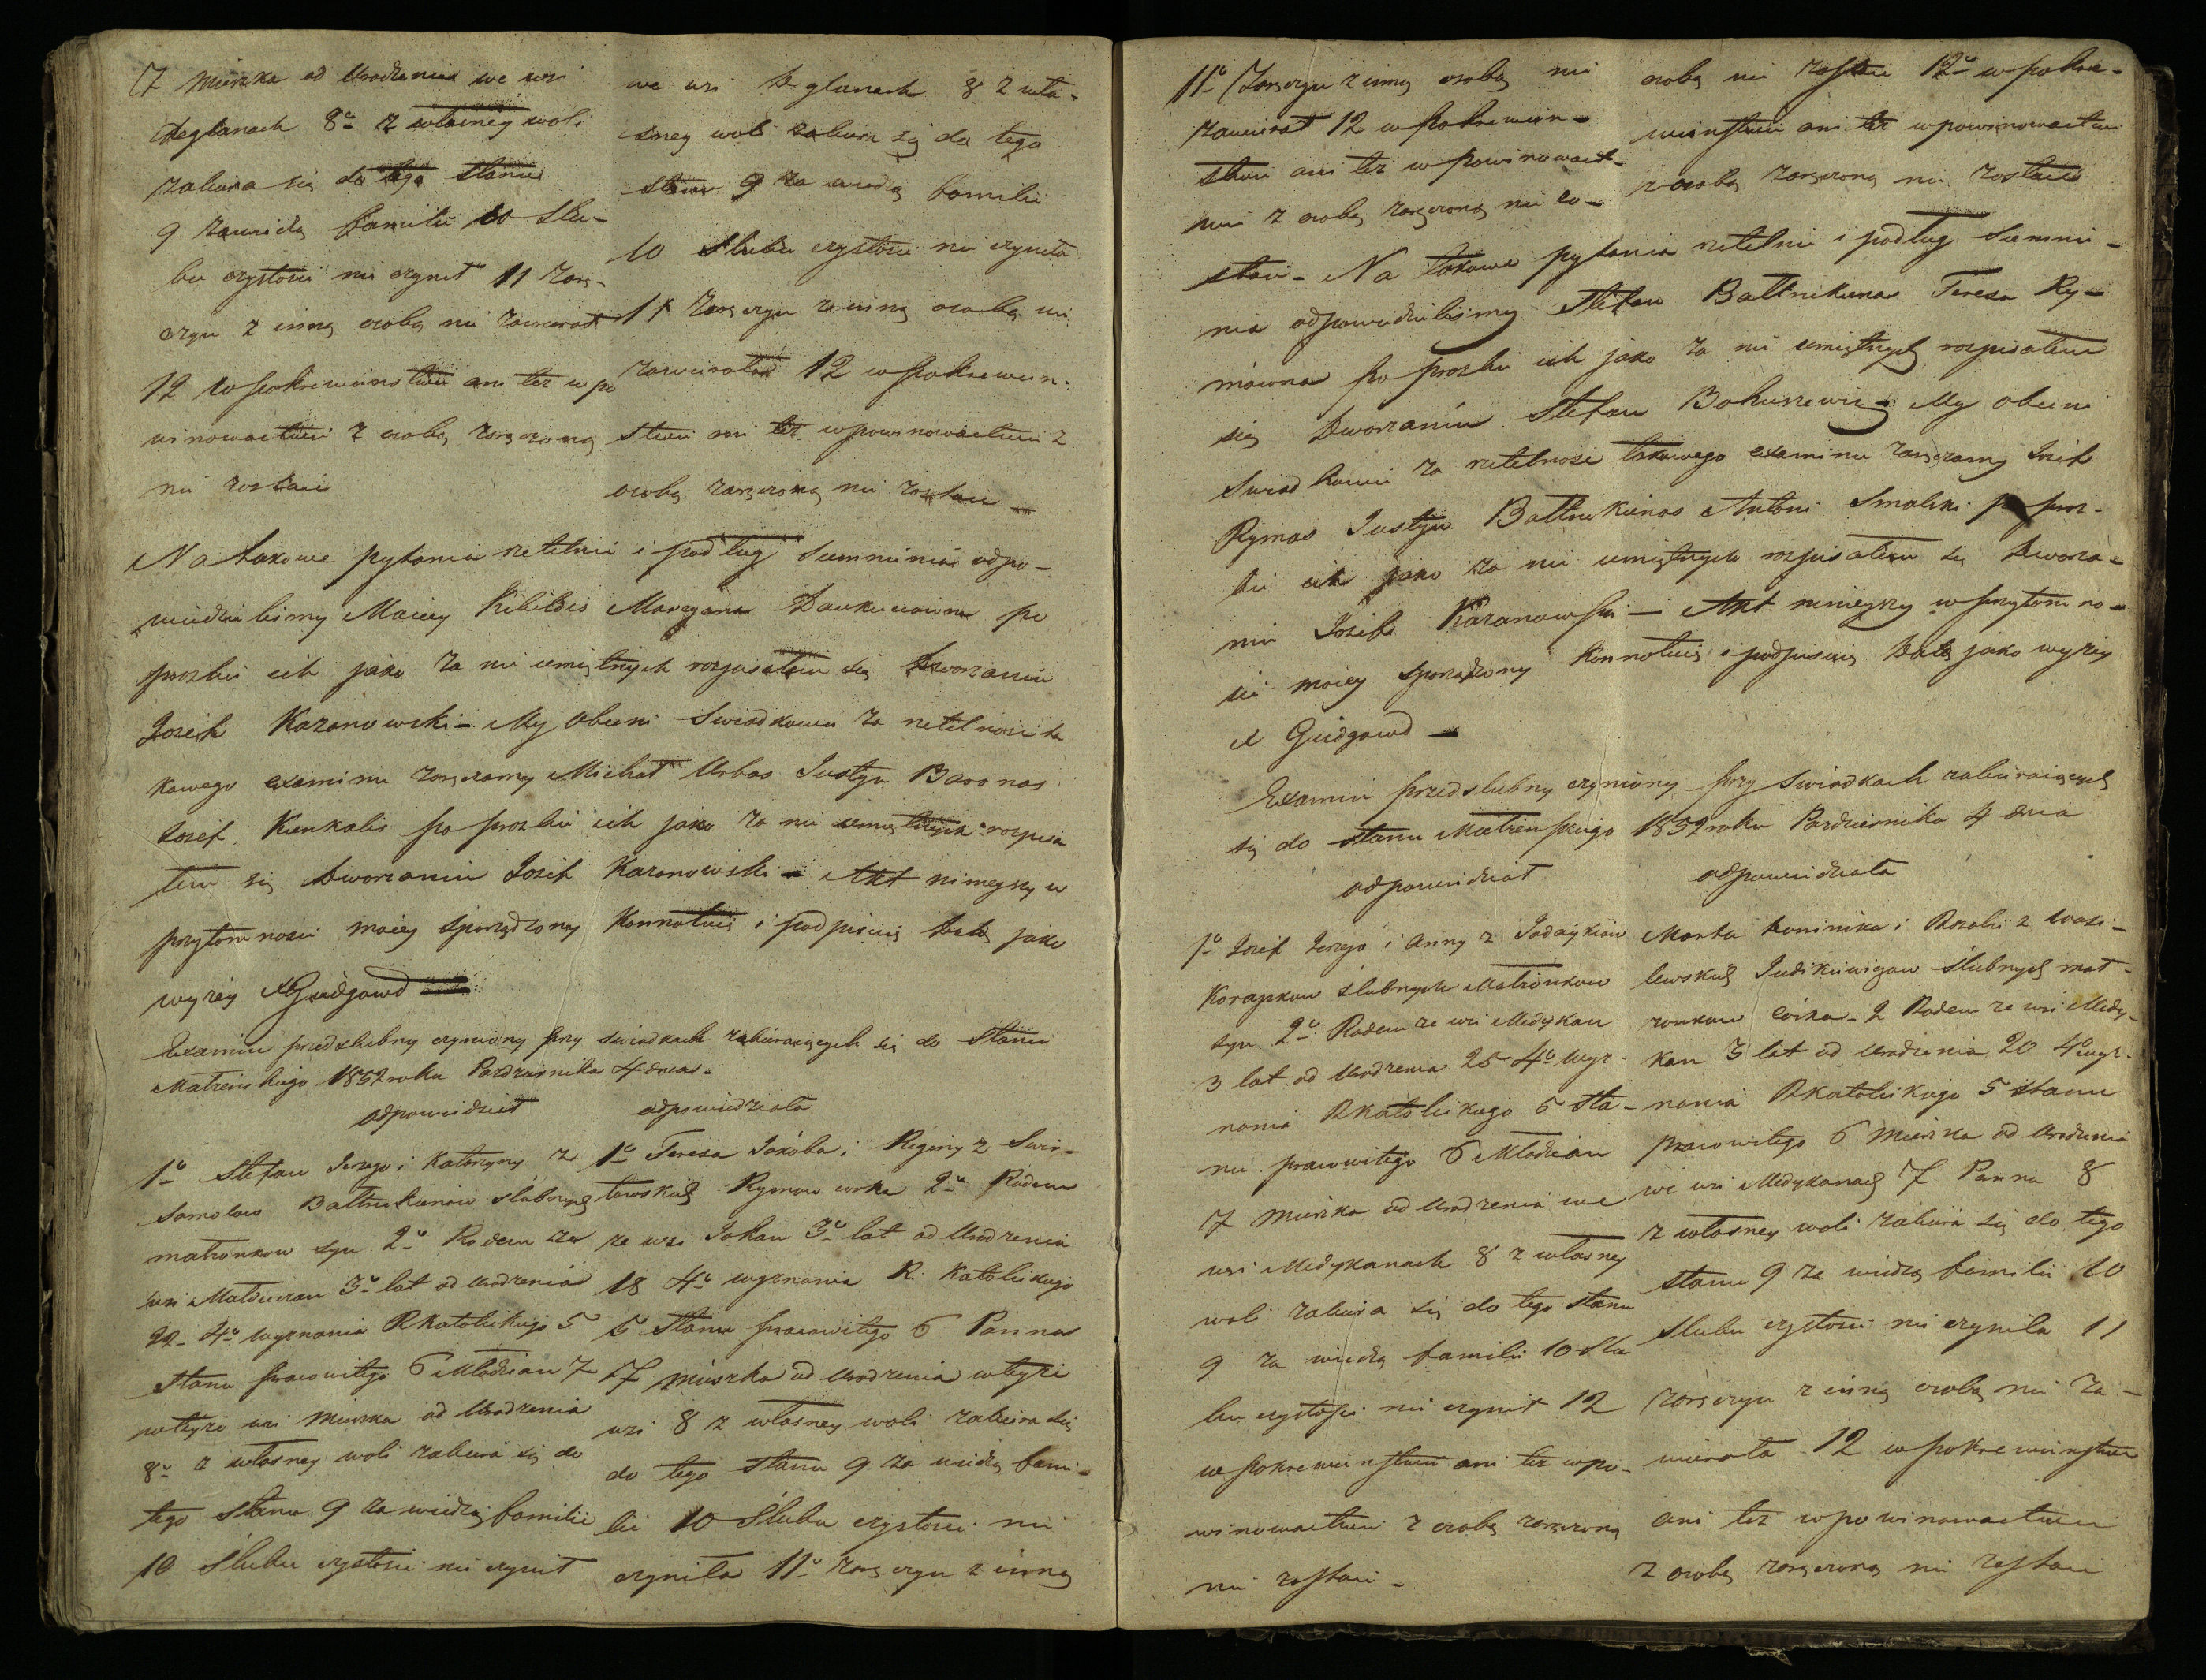 7 Mieszka od Urodzenia we wsi
Deglanach 8º z własney woli
zabiera się do tego stanu
9 zawiedzą familii 10 Slu-
bu czystości nie czynił 11 Zarę-
czyn z inną osobą nie zawierał
12 w pokrewienstwie ani też w po
winowactwie z osobą zaręczoną
nie zostaie
we wsi Deglanach 8 z wła-
sney woli zabiera się do tego
stanu 9 za wiedzą familii
10 Slubu czystości nie czyniła
11 Zaręczyn z inną osobą nie
zawierała 12 w pokrewien-
stwie ani też w powinowactwie z
osobą zaręczoną nie zostaie
Na takowe pytania rzetelnie i podług Summienia odpo-
wiedzielismy Maciey Kibildis Maryana Daukuciowna po
prozbie ich jako za nie umiętnych rozpisałem się Dworzanin
Jozef Kazanowski - My obecni Swiadkowie za rzetelnosc ta
kowego examinu zaręczamy Michał Urbas Justyn Baronas
Jozef Kunkalis po prozbie ich jako za nie umiętnych rozpisa
łem się Dworzanin Jozef Kazanowski - Akt ninieyszy w
przytomnosci moiey sporządzony Konnotuię i podpisuię Datą jako
wyżey X Giedgowd
Examin przedslubny czyniony przy swiadkach zabieraiących się do Stanu
Małzenskiego 1852 roku Pazdziernika 4 dnia -
odpowiedział
odpowiedziała
1º Stefan Jerzego i Katarzyny z
Samolow Bałtrukienow slubnych
małzonkow syn 2º Rodem ze
wsi Małdeucian 3º lat od Urodzenia
22 - 4º Wyznania Rkatolickiego 5
Stanu pracowitego 6 Młodzian 7
wteyże wsi Mieszka od Urodzenia
8º z własney woli zabiera się do
tego stanu 9 za wiedzą familii
10 Slubu czystości nie czynił
1º Teresa Jakóba i Reginy z Swir-
towskich Rymow corka 2º Rodem
ze wsi Jokan 3º lat od Urodzenia
18 4º wyznania R. Katolickiego
5 Stanu pracowitego 6 Panna
7 mieszka od Urodzenia wteyże
wsi 8 z własney woli zabiera się
do tego stanu 9 za wiedzą fami-
lii 10 Slubu czystosci nie
czyniła 11º Zaręczyn z inną
11º Zaręczyn z inną osobą nie
zawierał 12 w pokrewien-
stwie ani też w powinowact-
wie z osobą zaręczoną nie zo-
osobą nie zostaie 12º w pokre-
wienstwie ani też w powinowactwie
z osobą zaręczoną nie zostaie
staie - Na takowe pytania rzetelnie i podług Summie-
nia odpowiedzielismy Stefan Bałtrukienas Teresa Ry-
mowna po prozbie ich jako za nie umiętnych rozpisałem
się Dworzanin Stefan Bohuszewicz My obecni
Swiadkowie za rzetelnosc takowego examinu zaręczamy Jozef
Rymas Justyn Bałtrukienas Antoni Smalski po proz-
bie ich jako za nie umiętnych rozpisałem się Dworza-
nin Jozef Kazanowski - Akt ninieyszy w przytomno-
sci moiey sporządzony Konnotuię i podpisuię Datą jako wyżey
X Giedgowd -
Examin przedslubny czyniony przy swiadkach zabieraiących
się do stanu Małżenskiego 1852 roku Pazdziernika 4 dnia
odpowiedział
odpowiedziała
1º Jozef Jerzego i Anny z Jadaykiow
Korapkow slubnych Małżonkow
syn 2º Rodem ze wsi Medykan
3 lat od Urodzenia 25 4º Wyz-
nania Rkatolickiego 5 Sta-
nu pracowitego 6 Młodzian
7 Mieszka od Urodzenia we
wsi Medykanach 8 z własney
woli zabiera się do tego stanu
9 za wiedzą familii 10 Slu
bu czystosci nie czynił 12
w pokrewienstwie ani też w po-
winowactwie z osobą zaręczoną
nie zostaie -
Marta Dominika i Rozalii z Wasi-
lewskich Judikiewigow slubnych mał-
żonkow córka - 2 Rodem ze wsi Medy-
kan 3 lat od Urodzenia 20 4º wyz-
nania Rkatolickiego 5 Stanu
pracowitego 6 Mieszka od Urodzenia
we wsi Medykanach 7 Panna 8
z własney woli zabiera się do tego
stanu 9 za wiedzą familii 10
Slubu czystosci nie czyniła 11
Zaręczyn z inną osobą nie za-
wierała - 12 w pokrewienstwie
ani też w powinowactwie
z osobą zaręczoną nie zostaie